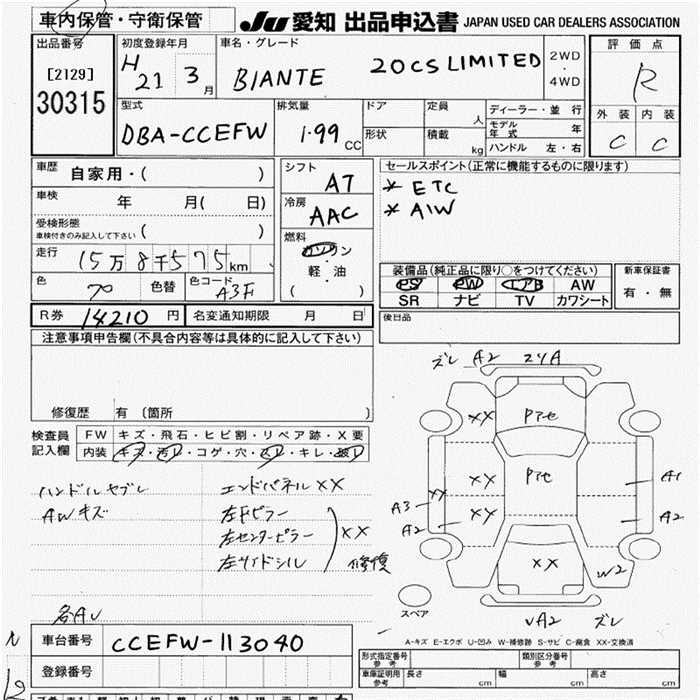 車内保管・守衛保管 JU 愛知 出品申込書 JAPAN USED CAR DEALERS ASSOCIATION
出品番号 初度登録年月 車名・グレード 評価点
[2129] H 21 年 3 月 BIANTE 20CS LIMITED 2WD・4WD R
30315
型式 排気量 ドア 定員 人 ディーラー・並 行 外装 内装
DBA-CCEFW 1.99 CC 形状 積載 kg モデル年式 年 C C
ハンドル 左・右
車歴 自家用・( ) シフト AT セールスポイント(正常に機能するものに限ります)
車検 年 月( 日) 冷房 AAC * ETC
受検形態 * AIW
車検付きのみ記入して下さい ( ) 燃料
走行 15万8千575km ガソリン・軽・油 ( )
装備品(純正品に限り○をつけてください) 新車保証書
PS PW エアB AW 有・無
SR ナビ TV カワシート
色 色替 色コード A3F
R券 14210 円 名変通知期限 月 日 後日品
注意事項申告欄(不具合内容等は具体的に記入して下さい)
修復歴 有(箇所 )
検査員記入欄 FW キズ・飛石・ヒビ割・リペア跡・X要
内装 キズ・汚レ・コゲ・穴・スレ・キレ・破レ
ズレ A2
XX Pアセ
XX Pアセ A1
A3 XX XX A2
A2
XX W2
ハンドルセブレ エンドパネルXX
AWキズ 左Fピラー
左センターピラー XX
左サイドシル 修復
スペア
A2 ズレ
A-キズ E-エクボ U-凹み W-補修跡 S-サビ C-腐食 XX-交換済
車台番号 CCEFW-113040
登録番号
型式指定番号 参考 類別区分番号 参考
車庫証明用 参考 長さ cm 幅 cm 高さ cm